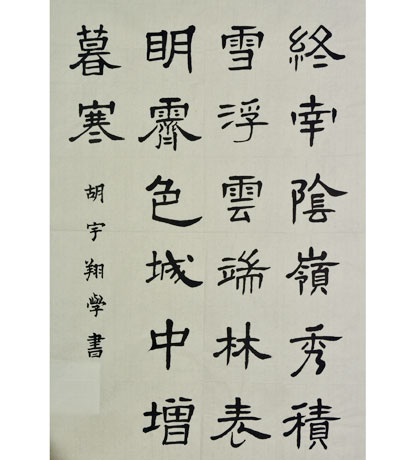 終南陰嶺秀積
雪浮雲端林表
明霽色城中增
暮寒
胡宇翔學書